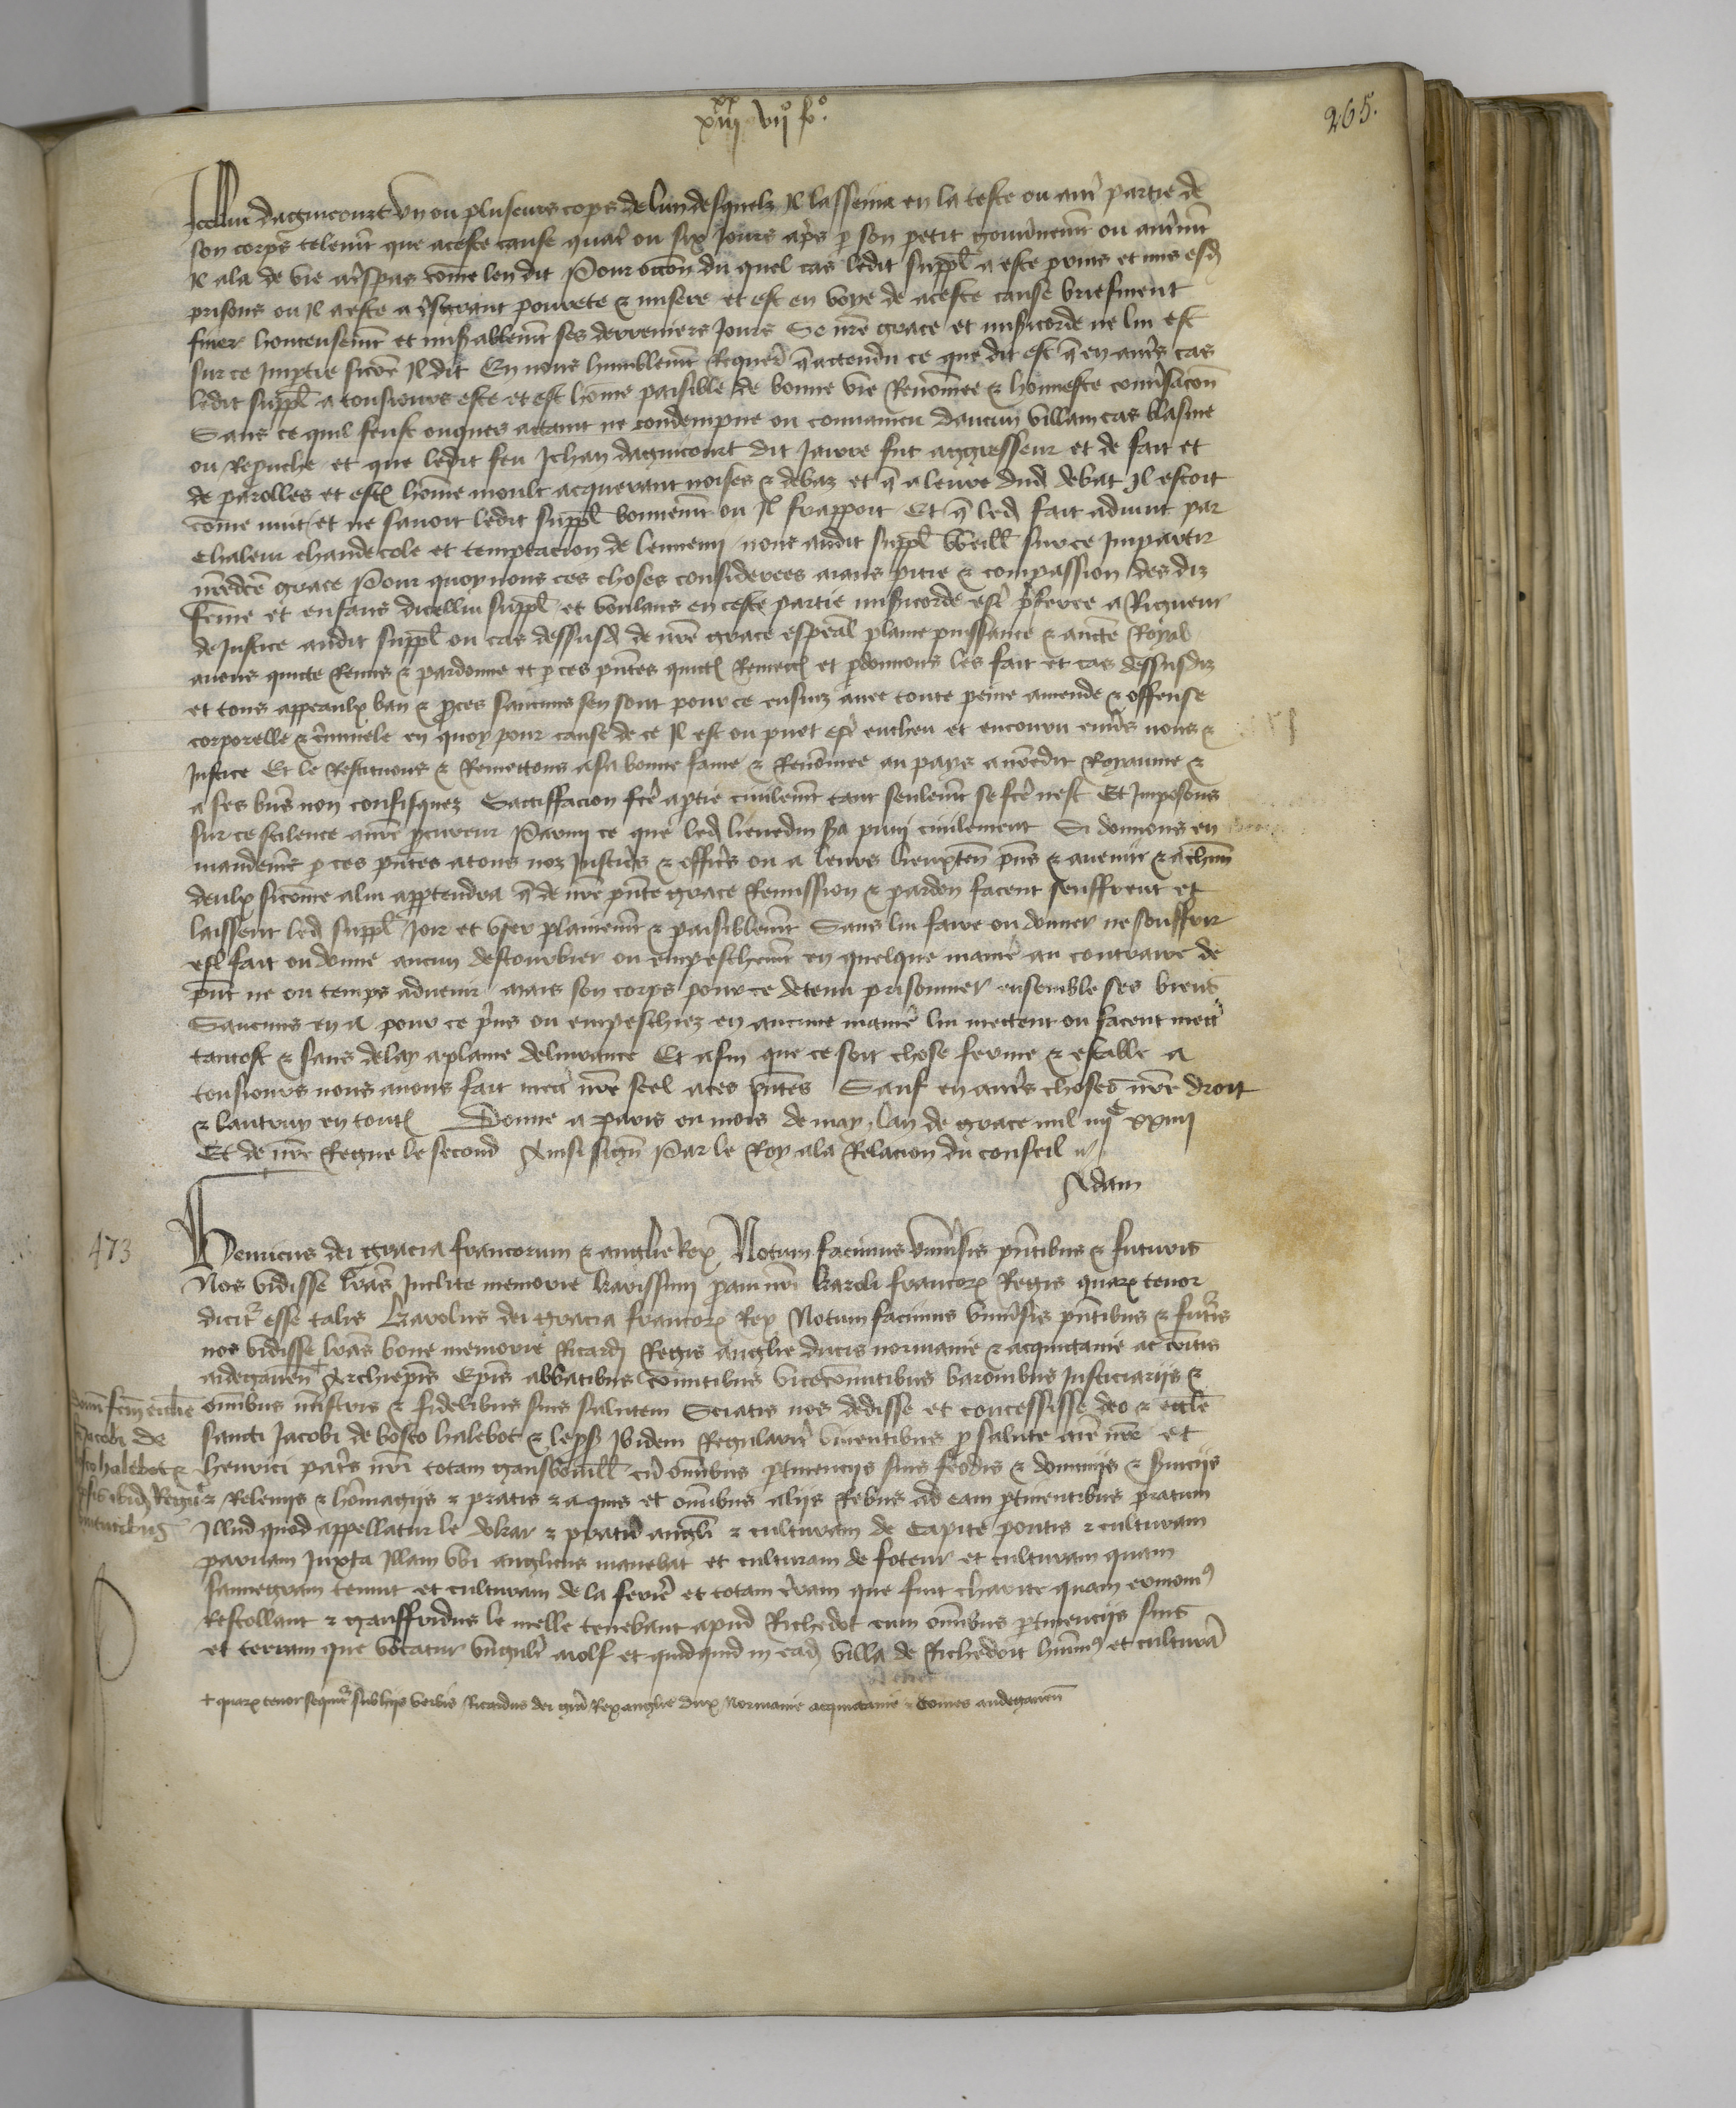 xiiii xx vii o fo.
265.
Icellui dagincourt un ou pluseurs cops de lun desquelz Il lassena en la teste ou autre partie de
son corps telement que a ceste cause quatre ou six Jours apres par son petit gouvernement ou autrement
Il ala de vie a trespas comme len dit Pour occasion du quel cas ledit suppl a este prins et mis esd
prisons ou Il a este a tresgrant povrete & misere et est en voye de a ceste cause briefment
finer honteusement et miserablement ses derreniers Jours Se nre grace et misericorde ne lui est
sur ce Impartie sicomme Il dit En nous humblement Requerant que attendu ce que dit est que en autres cas
ledit suppl a tousiours este et est homme paisible de bonne vie Renommee & honneste conversacion
Sans ce quil feust onques attaint ne condempne ou convaincu daucun villain cas blasme
ou Reprouche et que ledit feu Jehan dagincourt dit fut aggresseur et de fait et
de parolles et estoit homme moult acquerant noises & debaz et que a leure dud debat Il estoit
comme nuit et ne savoit ledit suppl bonnement ou Il frappoit Et que led fait advint par
chaleur chaudecole et temptacion de lennemi nous audit suppl Veillons sur ce Impartir
nredicte grace Pour quoy nous ces choses considerees aians pitie & compassion des diz
femme et enfans dicellui suppl et voulans en ceste partie misericorde estre preferee a Rigueur
de Justice audit suppl ou cas dessusd de nre grace especial plaine puissance & auctorite Royal
avons quicte Remis & pardonne et par ces presentes quictons Remectons et pardonnons les fait et cas dessusdiz
et tous appeaulx ban & proces saucuns sen sont pour ce ensuiz avec toute peine amende & offense
corporelle & criminele en quoy pour cause de ce Il est ou puet estre encheu et encouru envers nous &
Justice Et le Restituons & Remettons a sa bonne fame & Renommee au pays a nredit Royaume &
a ses biens non confisquez Satisfacion faicte a partie civilement tant seulement se faicte nest Et Imposons
sur ce silence a nre procureur Parmi ce que led sera puni civilement Si donnons en
mandement par ces presentes a tous noz Justiciers & officiers ou a leurs lieuxtenans presens & avenir & a chascun
deulx sicomme a lui appartendra que de nre presente grace Remission & pardon facent seuffrent et
laissent led suppl Joir et user plainement & paisiblement Sans lui faire ou donner ne souffrir
estre fait ou donne aucun destourbier ou empeschement en quelque maniere au contraire de
present ne ou temps advenir Mais son corps pour ce detenu prisonnier ensemble ses biens
Saucuns en a pour ce prins ou empeschiez en aucune maniere lui mettent ou facent mettre
tantost & sans delay a plaine delivrance Et afin que ce soit chose ferme & estable a
tousiours nous avons fait mettre nre seel a ces presentes Sauf en autres choses nre droit
& lautruy en toutes Donne a paris ou mois de may lan de grace mil iiiic xxiiii
Et de nre Regne le second Ainsi signe Par le Roy a la Relacion du conseil
Adam
473
Henricus dei gracia francorum & anglie Rex Notum facimus universis presentibus & futuris
Nos vidisse litteras Inclite memorie karissimi patris nri karoli francorum Regis quarum tenor
dicitur esse talis Karolus dei gracia francorum Rex Notum facimus universis presentibus & futuris
nos vidisse litteras bone memorie Ricardi Regis anglie ducis normanie & acquitanie ac comitis
andegavensis + Archiepiscopis Episcopis abbatibus comitibus vicecomitibus baronibus Justiciariis &
omnibus ministris & fidelibus suis salutem Sciatis nos dedisse et concessisse deo & ecclesie
sancti Jacobi de bosco halebot & leprosis Ibidem Regulariter viventibus pro salute anime nre et
henrici patris nri totam cum omnibus pertinenciis suis feodis & dominiis & serviciis
& Releviis & homagiis & pratis & aquis et omnibus aliis Rebus ad eam pertinentibus pratum
Illud quod appellatur le & pratum angli & culturam de Capite pontis & culturam
parvam Juxta Illam ubi anglicus manebat et culturam de foteur et culturam quam
tenuit et culturam de la feriere et totam terram que fuit quam
Restollant & gauffridus le melle tenebant apud Richedot cum omnibus pertinenciis suis
et terram que vocatur et quidquid in eadem villa de Richedoit habemus et culturam
+ quarum tenor sequitur sub hiis verbis Ricardus dei gracia Rex anglie dux Normanie acquitanie Comes andegavensis
ecclesie
Jacobi de
bosco halebot &
leprosis ibid Regul
viventibus